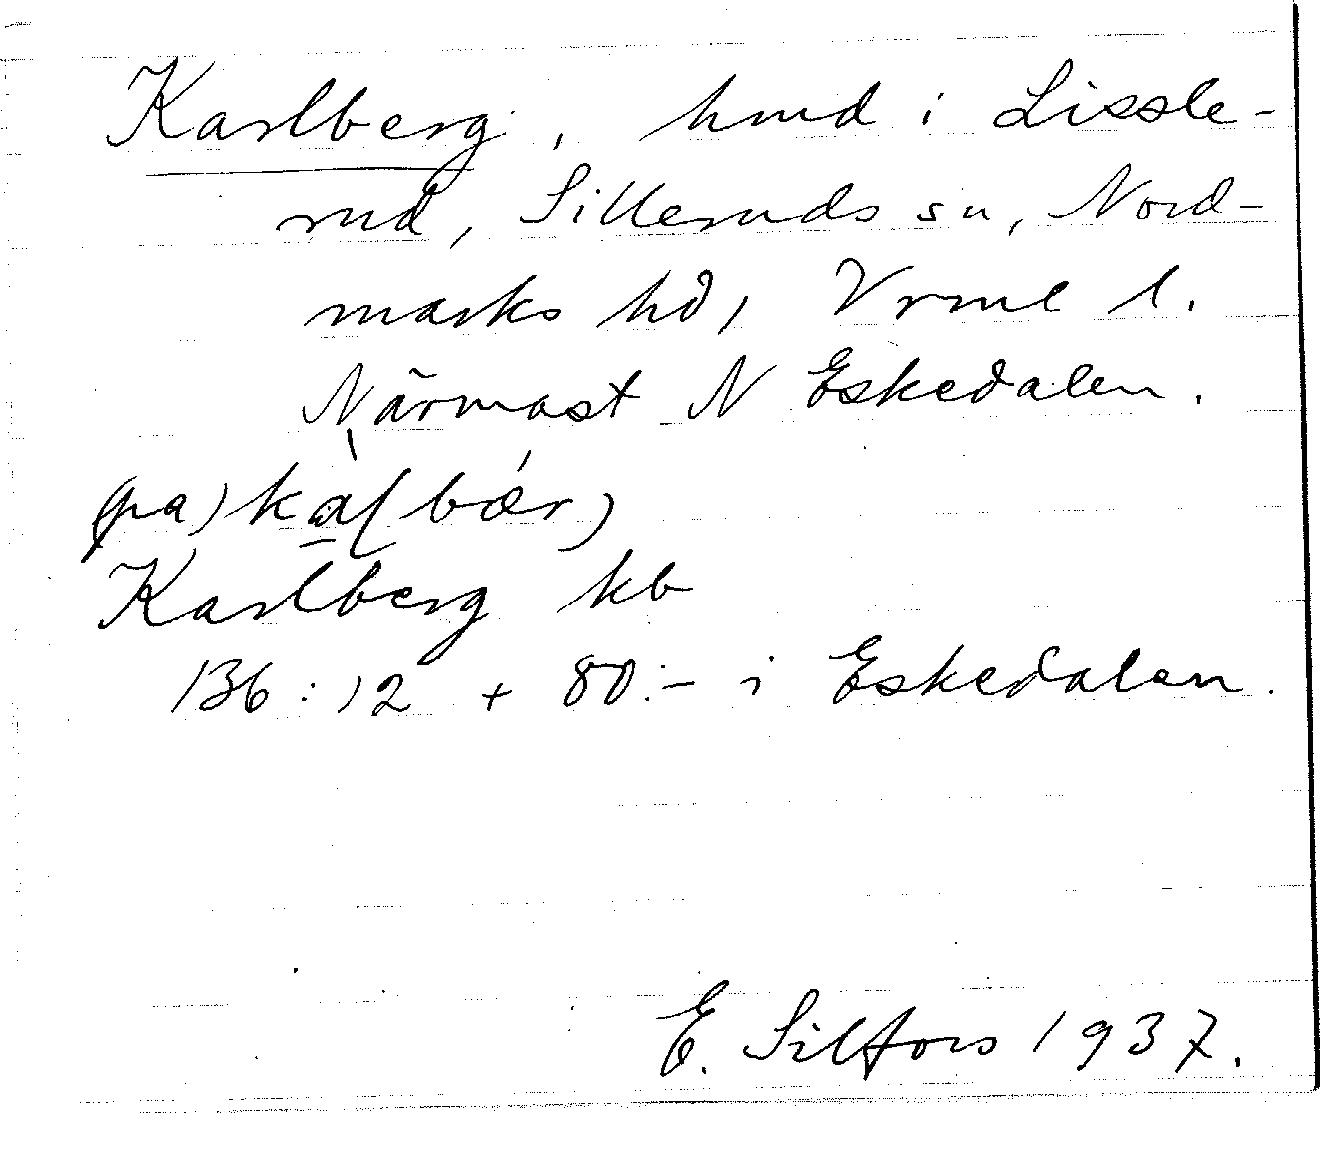 Karlberg, hmd i Lissle-
rud, Silleruds sn, Nord-
marks hd, Vrml l.
Närmast N Eskedalen.
(pa) kàl(bǽr)
Karlberg kb
136:12 + 80:- i Eskedalen.
E. Silfors 1937.